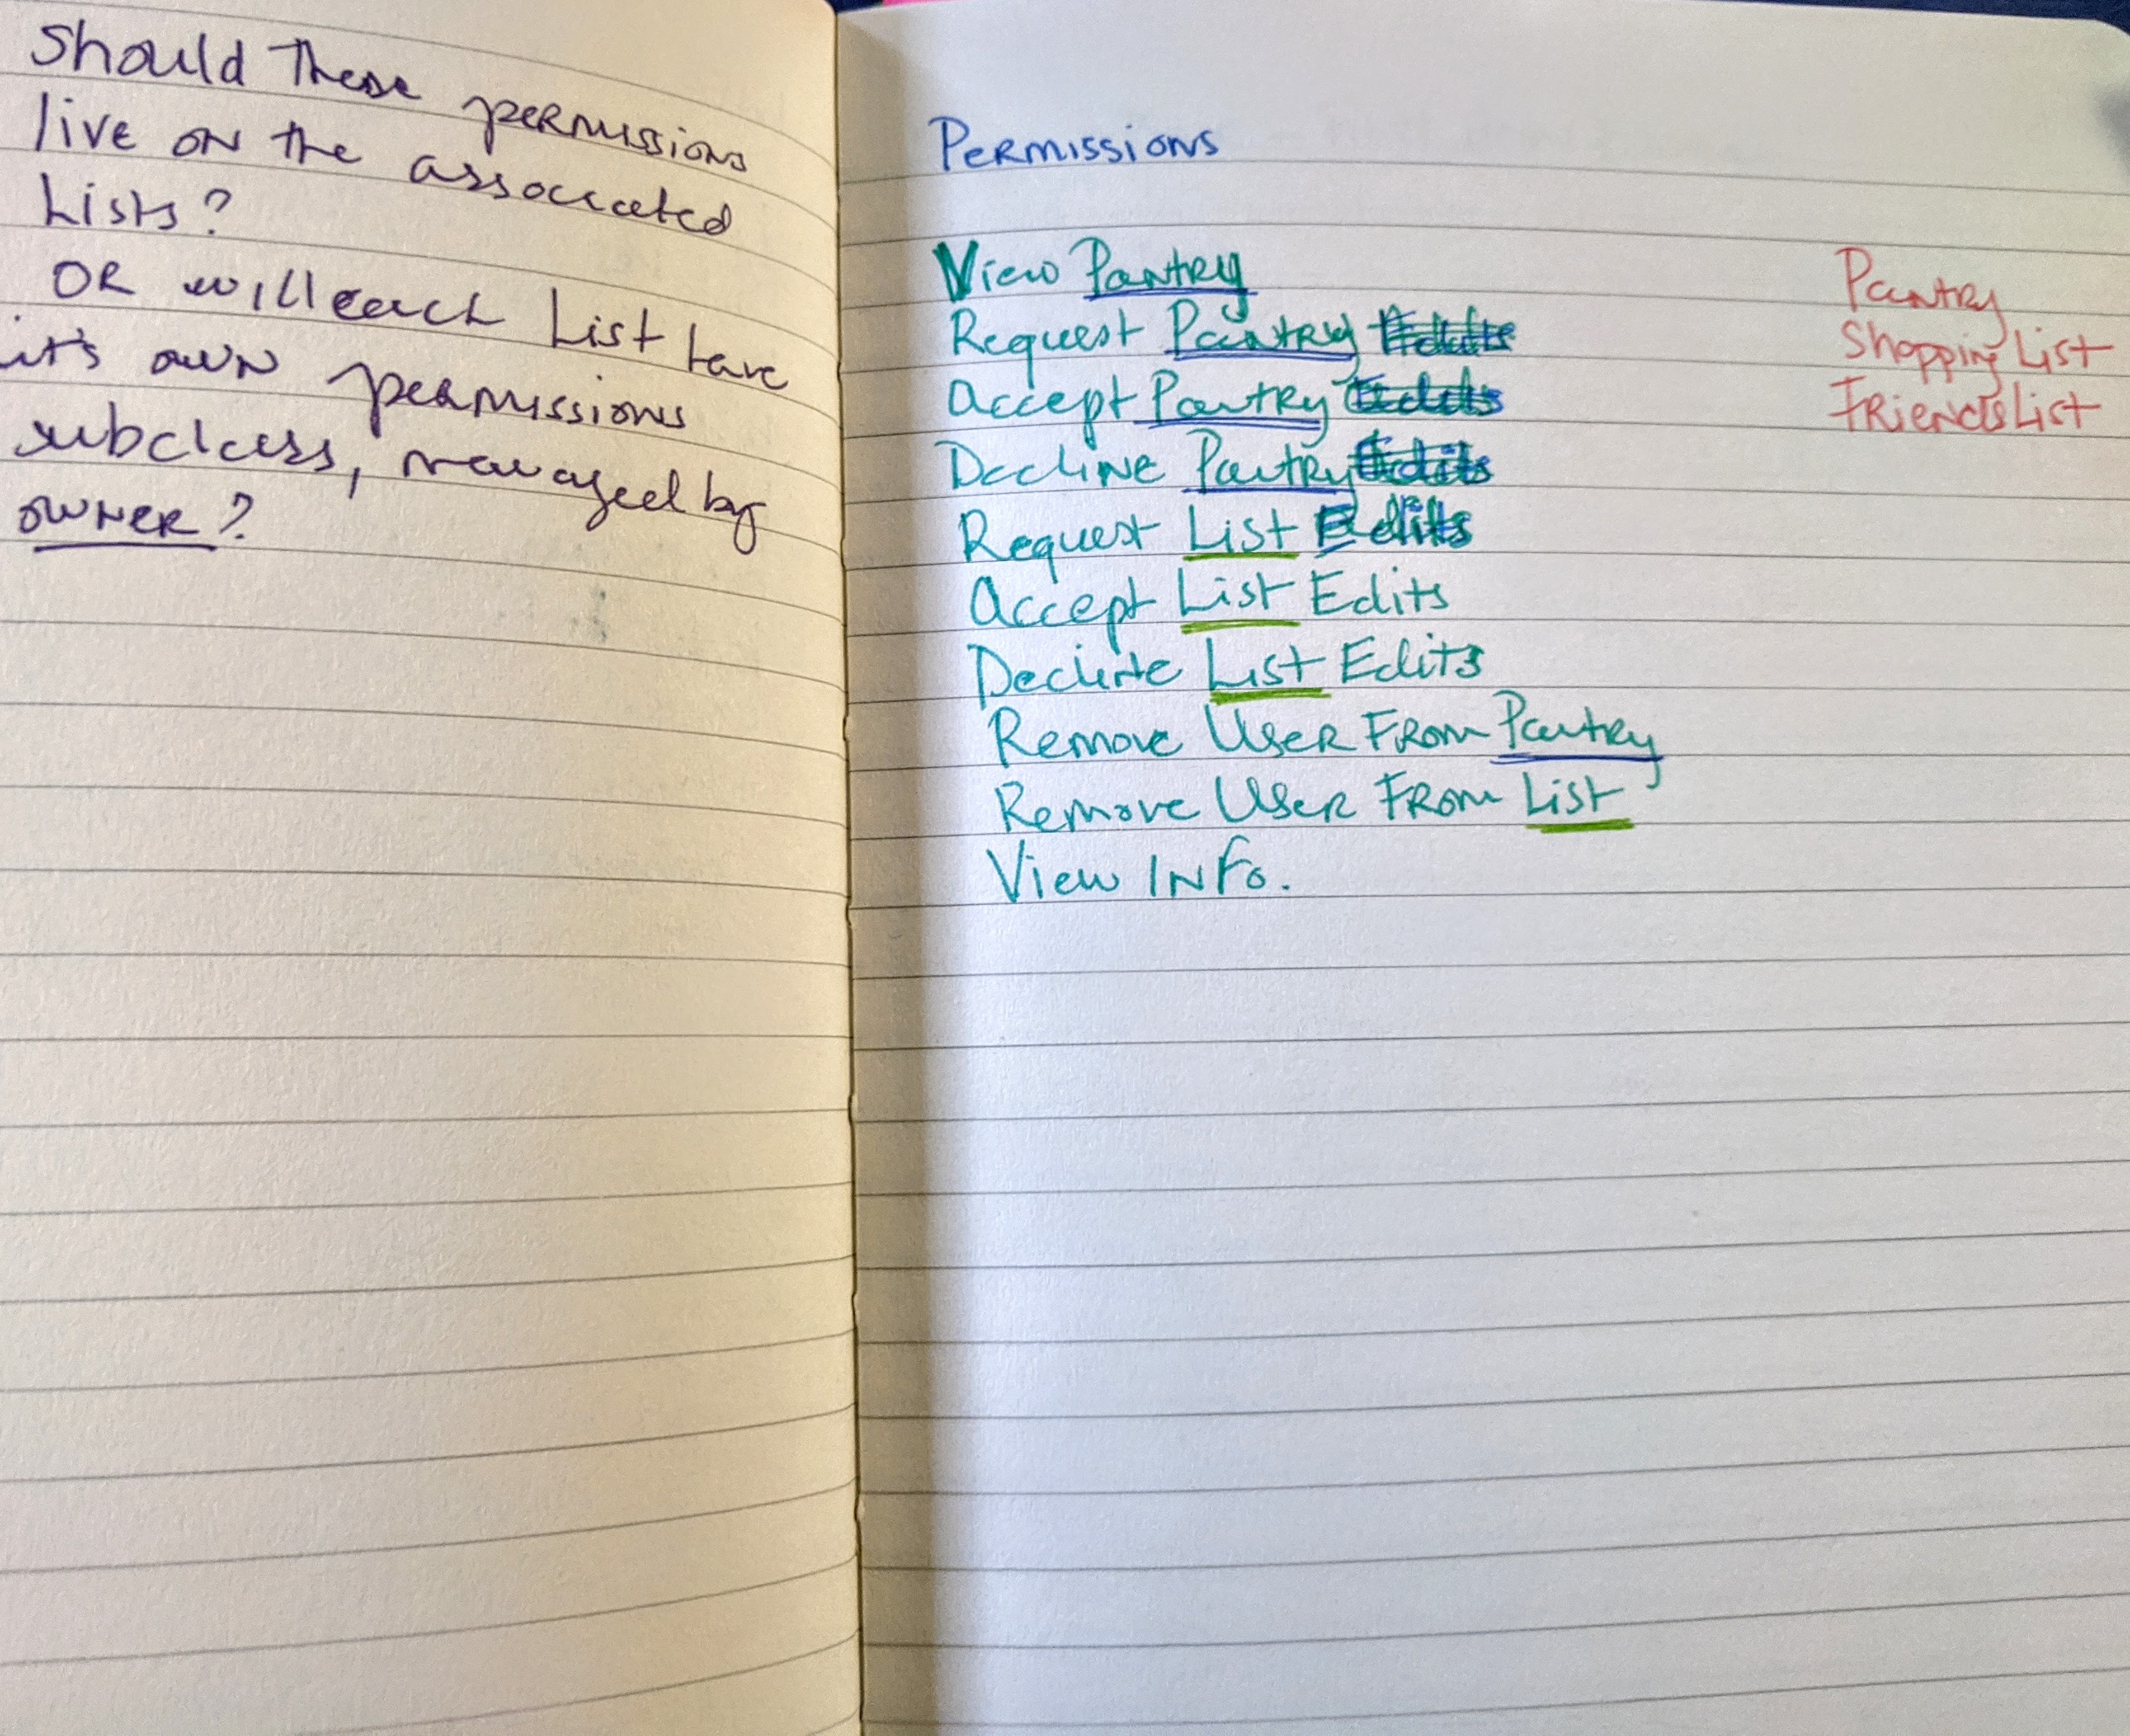 Should These permissions
live on the associated
Lists?
OR will each List have
it's own permissions
subclass, managed by
owner?
Permissions
View Pantry
Request Pantry Edits
Accept Pantry Edits
Decline Pantry Edits
Request List Edits
Accept List Edits
Decline List Edits
Remove User From Pantry
Remove User From List
View Info.
Pantry
Shopping List
Friends List